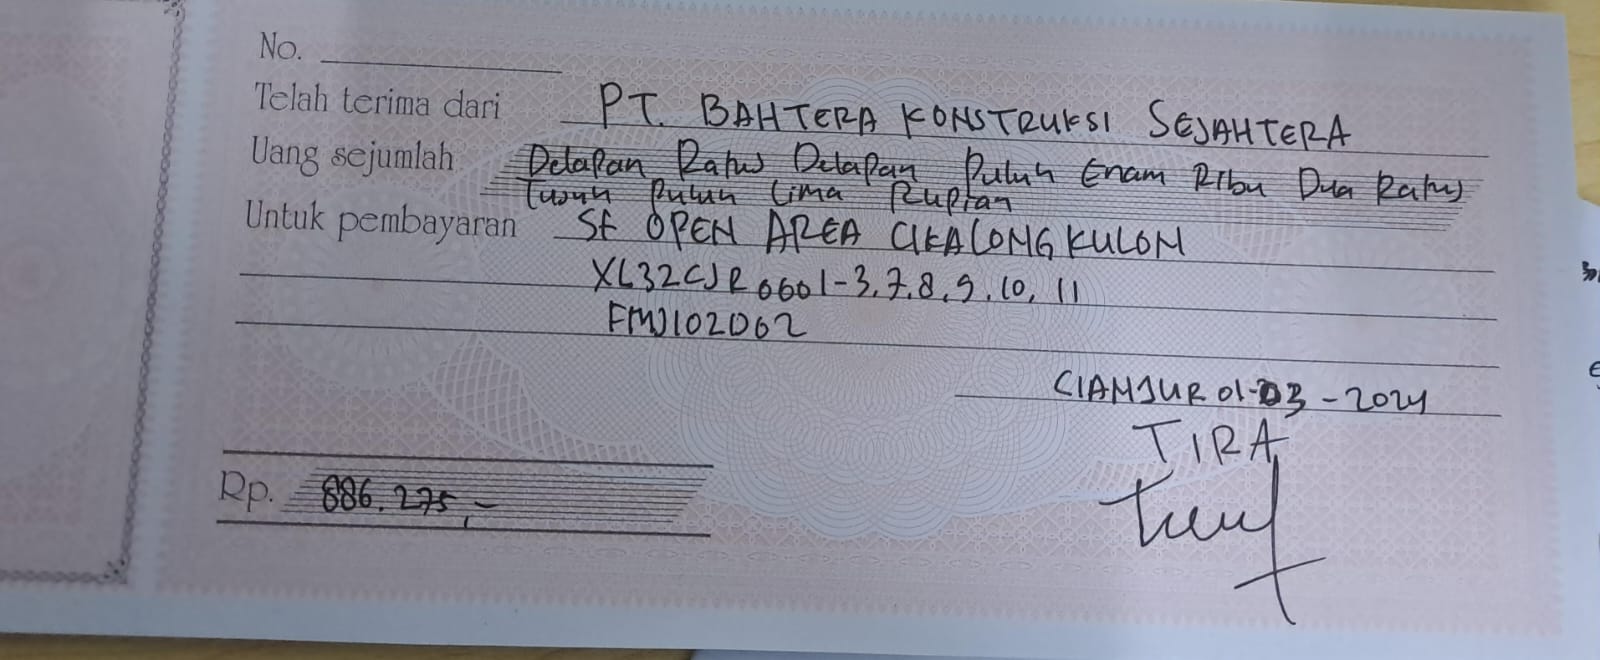 No.
Telah terima dari PT. BAHTERA KONSTRUKSI SEJAHTERA
Uang sejumlah Delapan Ratus Delapan Puluh Enam Ribu Dua Ratus
Tujuh Puluh Lima Rupiah
Untuk pembayaran Sf OPEN AREA CIKALONG KULON
XL32CJR0601-3,7.8.9.10,11
FMJ102D62
CIANJUR 01-03-2024
TIRA
Rp. 886.275,-